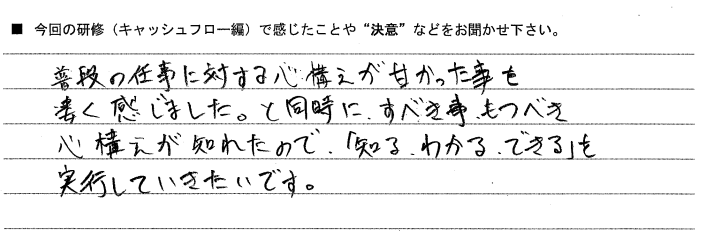 ■ 今回の研修（キャッシュフロー編）で感じたことや“決意”などをお聞かせ下さい。
普段の仕事に対する心構えが甘かった事を
凄く感じました。と同時に、すべき事、もつべき
心構えが知れたので、「知る、わかる、できる」を
実行していきたいです。